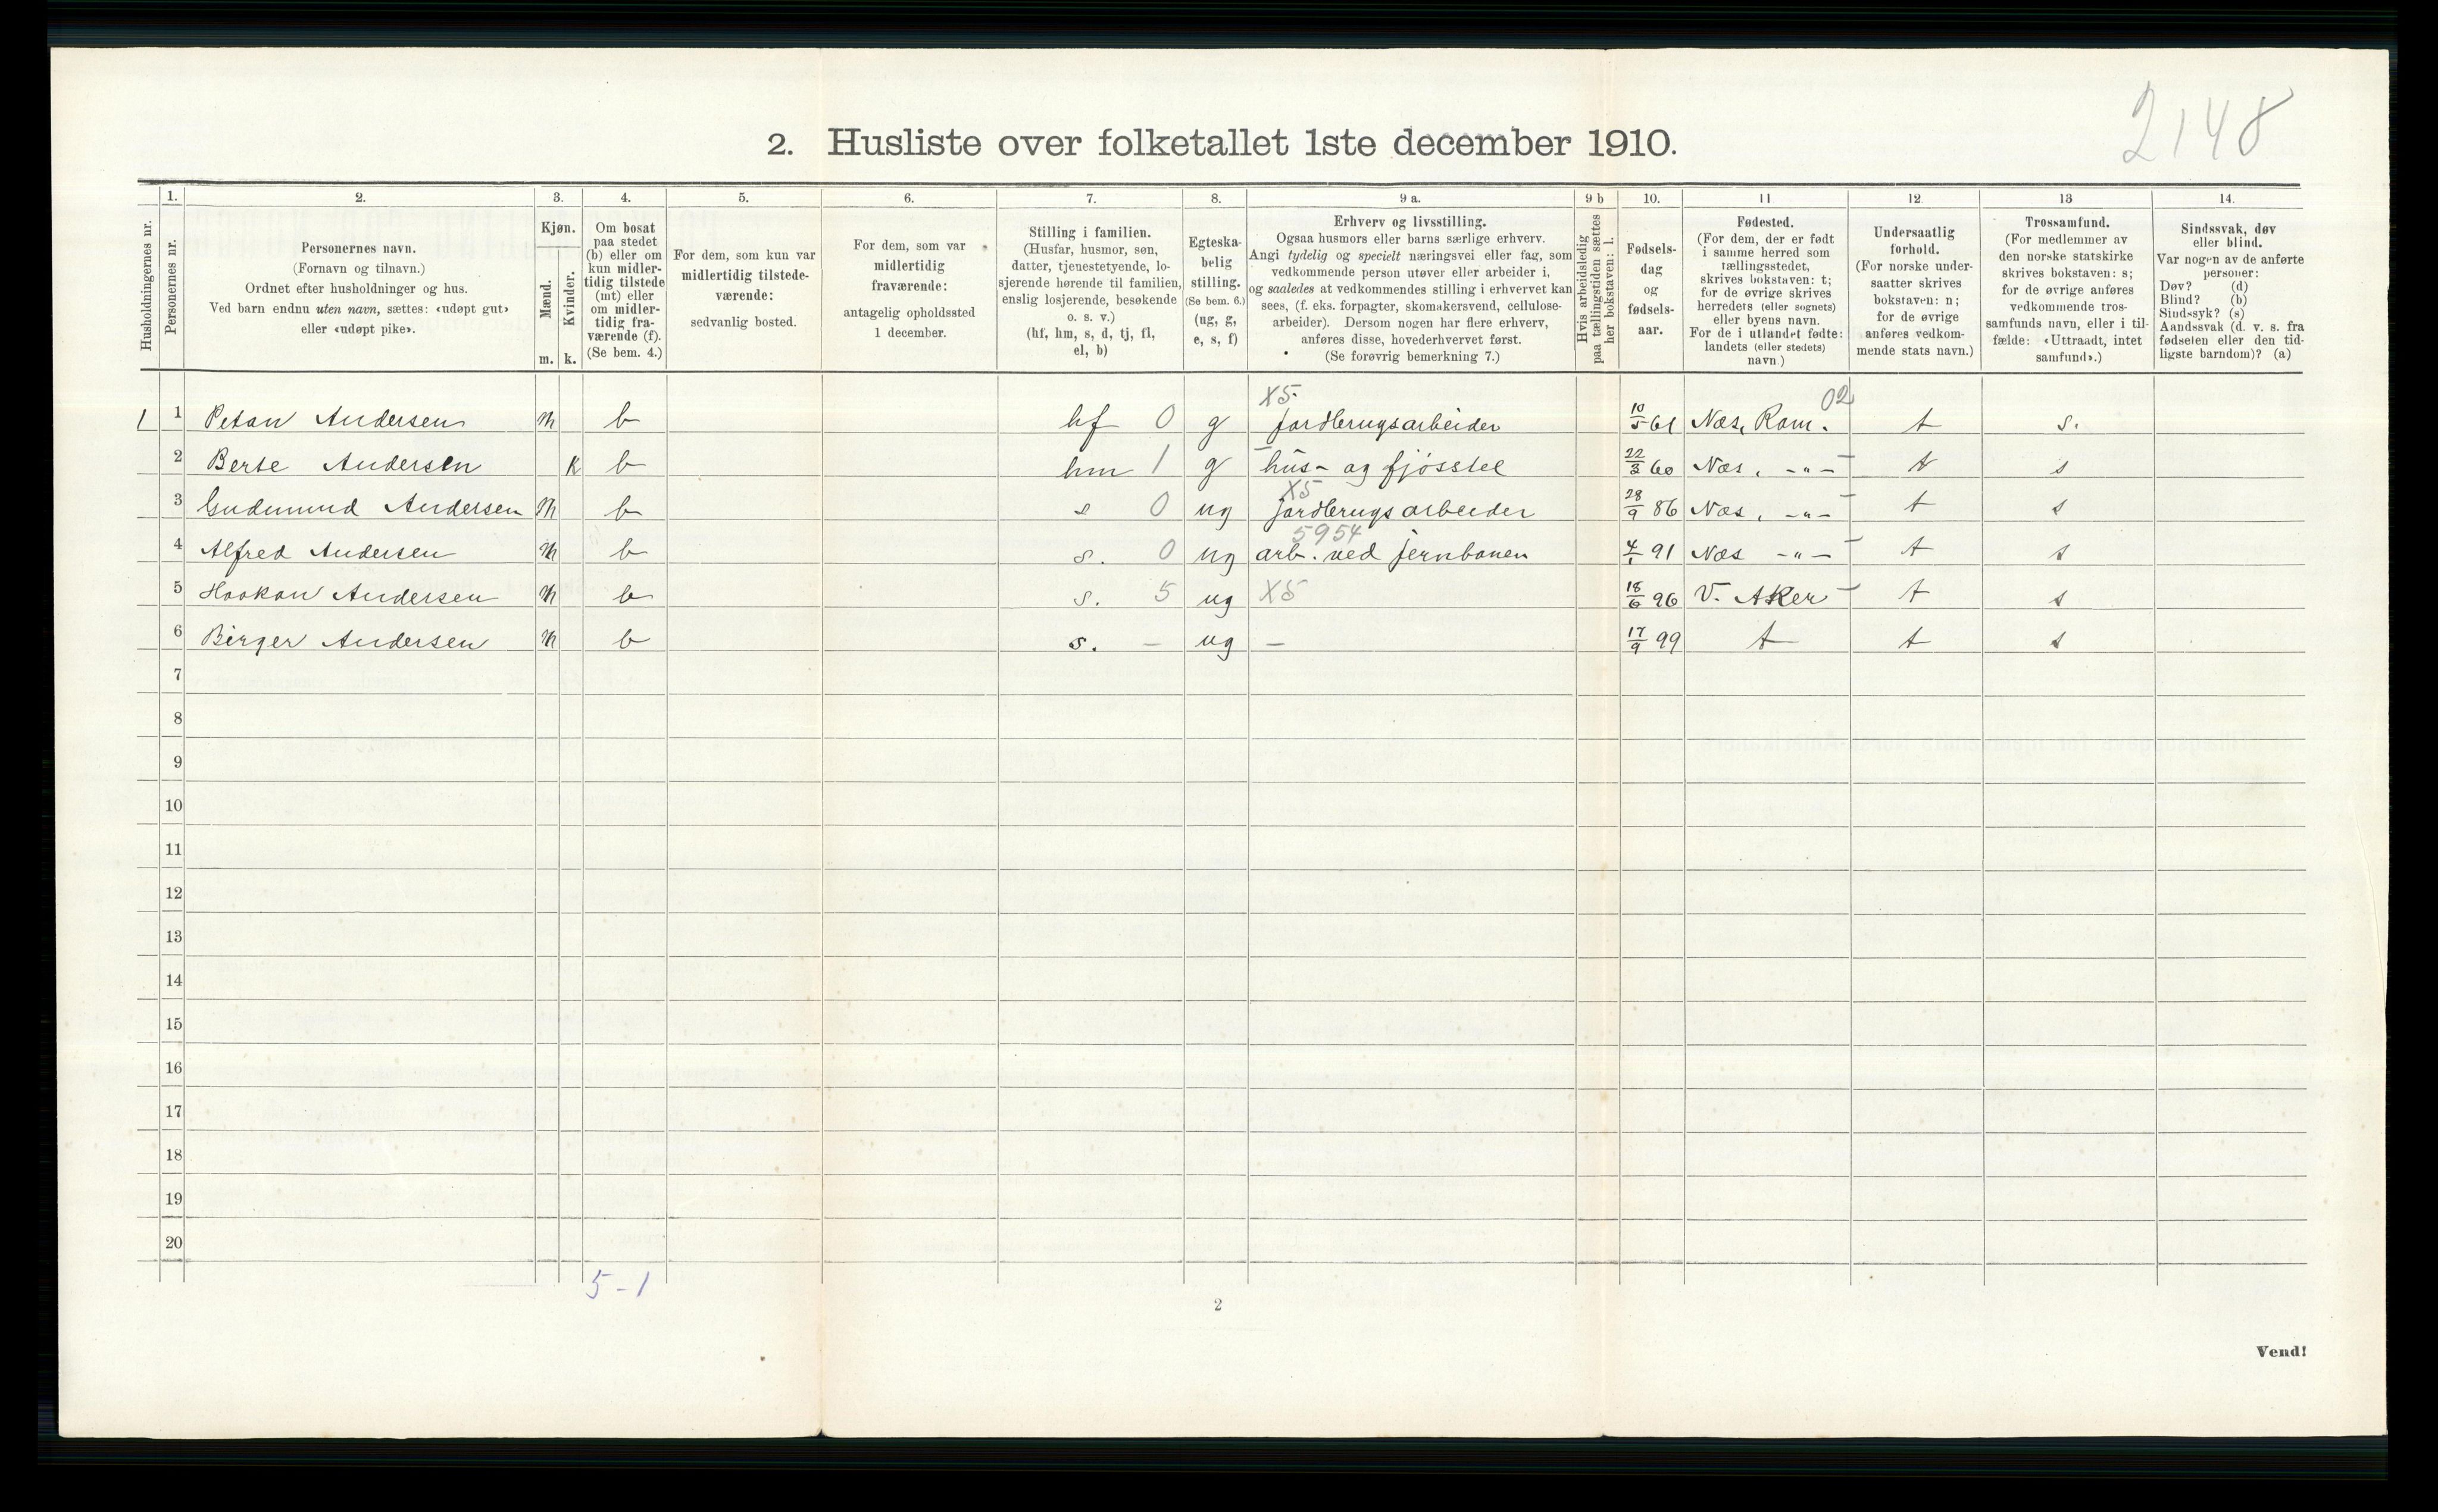 2148
2. Husliste over folketallet 1ste december 1910.
Husholdningernes nr.
1. Personernes nr.
2. Personernes navn.
(Fornavn og tilnavn.)
Ordnet efter husholdninger og hus.
Ved barn endnu uten navn, sættes: «udøpt gut»
eller «udøpt pike».
3. Kjøn.
Mænd. m.
Kvinder. k.
4. Om bosat
paa stedet
(b) eller om
kun midler-
tidig tilstede
(mt) eller
om midler-
tidig fra-
værende (f).
(Se bem. 4.)
5. For dem, som kun var
midlertidig tilstede-
værende:
sedvanlig bosted.
6. For dem, som var
midlertidig
fraværende:
antagelig opholdssted
1 december.
7. Stilling i familien.
(Husfar, husmor, søn,
datter, tjenestetyende, lo-
sjerende hørende til familien,
enslig losjerende, besøkende
o. s. v.)
(hf, hm, s, d, tj, fl,
el, b)
8. Egteska-
belig
stilling.
(Se bem. 6.)
(ug, g,
e, s, f)
9 a. Erhverv og livsstilling.
Ogsaa husmors eller barns særlige erhverv.
Angi tydelig og specielt næringsvei eller fag, som
vedkommende person utøver eller arbeider i,
og saaledes at vedkommendes stilling i erhvervet kan
sees, (f. eks. forpagter, skomakersvend, cellulose-
arbeider). Dersom nogen har flere erhverv,
anføres disse, hovederhvervet først.
(Se forøvrig bemerkning 7.)
9 b Hvis arbeidsledig
paa tællingstiden sættes
her bokstaven: l.
10. Fødsels-
dag
og
fødsels-
aar.
11 Fødested.
(For dem, der er født
i samme herred som
tællingsstedet,
skrives bokstaven: t;
for de øvrige skrives
herredets (eller sognets)
eller byens navn.
For de i utlandet fødte:
landets (eller stedets)
navn.)
12. Undersaatlig
forhold.
(For norske under-
saatter skrives
bokstaven: n;
for de øvrige
anføres vedkom-
mende stats navn.)
13 Trossamfund.
(For medlemmer av
den norske statskirke
skrives bokstaven: s;
for de øvrige anføres
vedkommende tros-
samfunds navn, eller i til-
fælde: «Uttraadt, intet
samfund».)
14. Sindssvak, døv
eller blind.
Var nogen av de anførte
personer:
Døv? (d)
Blind? (b)
Sindssyk? (s)
Aandssvak (d. v. s. fra
fødselen eller den tid-
ligste barndom)? (a)
X5 02
1 1 Petan Andersen m b hf 0 g jordbrugsarbeider 10/5 61 Næs, Rom. t s.
2 Berte Andersen K b hm 1 g hus- og fjösstel 22/3 60 Næs, -"- t s
X5
3 Gudmund Andersen m b s 0 ug jordbrugsarbeider 28/9 86 Næs, -"- t s
5954
4 Alfred Andersen m b s. 0 ug arb. ved jernbanen 4/1 91 Næs -"- t s
5 Haakon Andersen m b s. 5 ug X5 18/6 96 V. Aker t s
6 Birger Andersen m b s. - ug - 17/9 99 t t s
7
8
9
10
11
12
13
14
15
16
17
18
19
20
5-1
2
Vend!